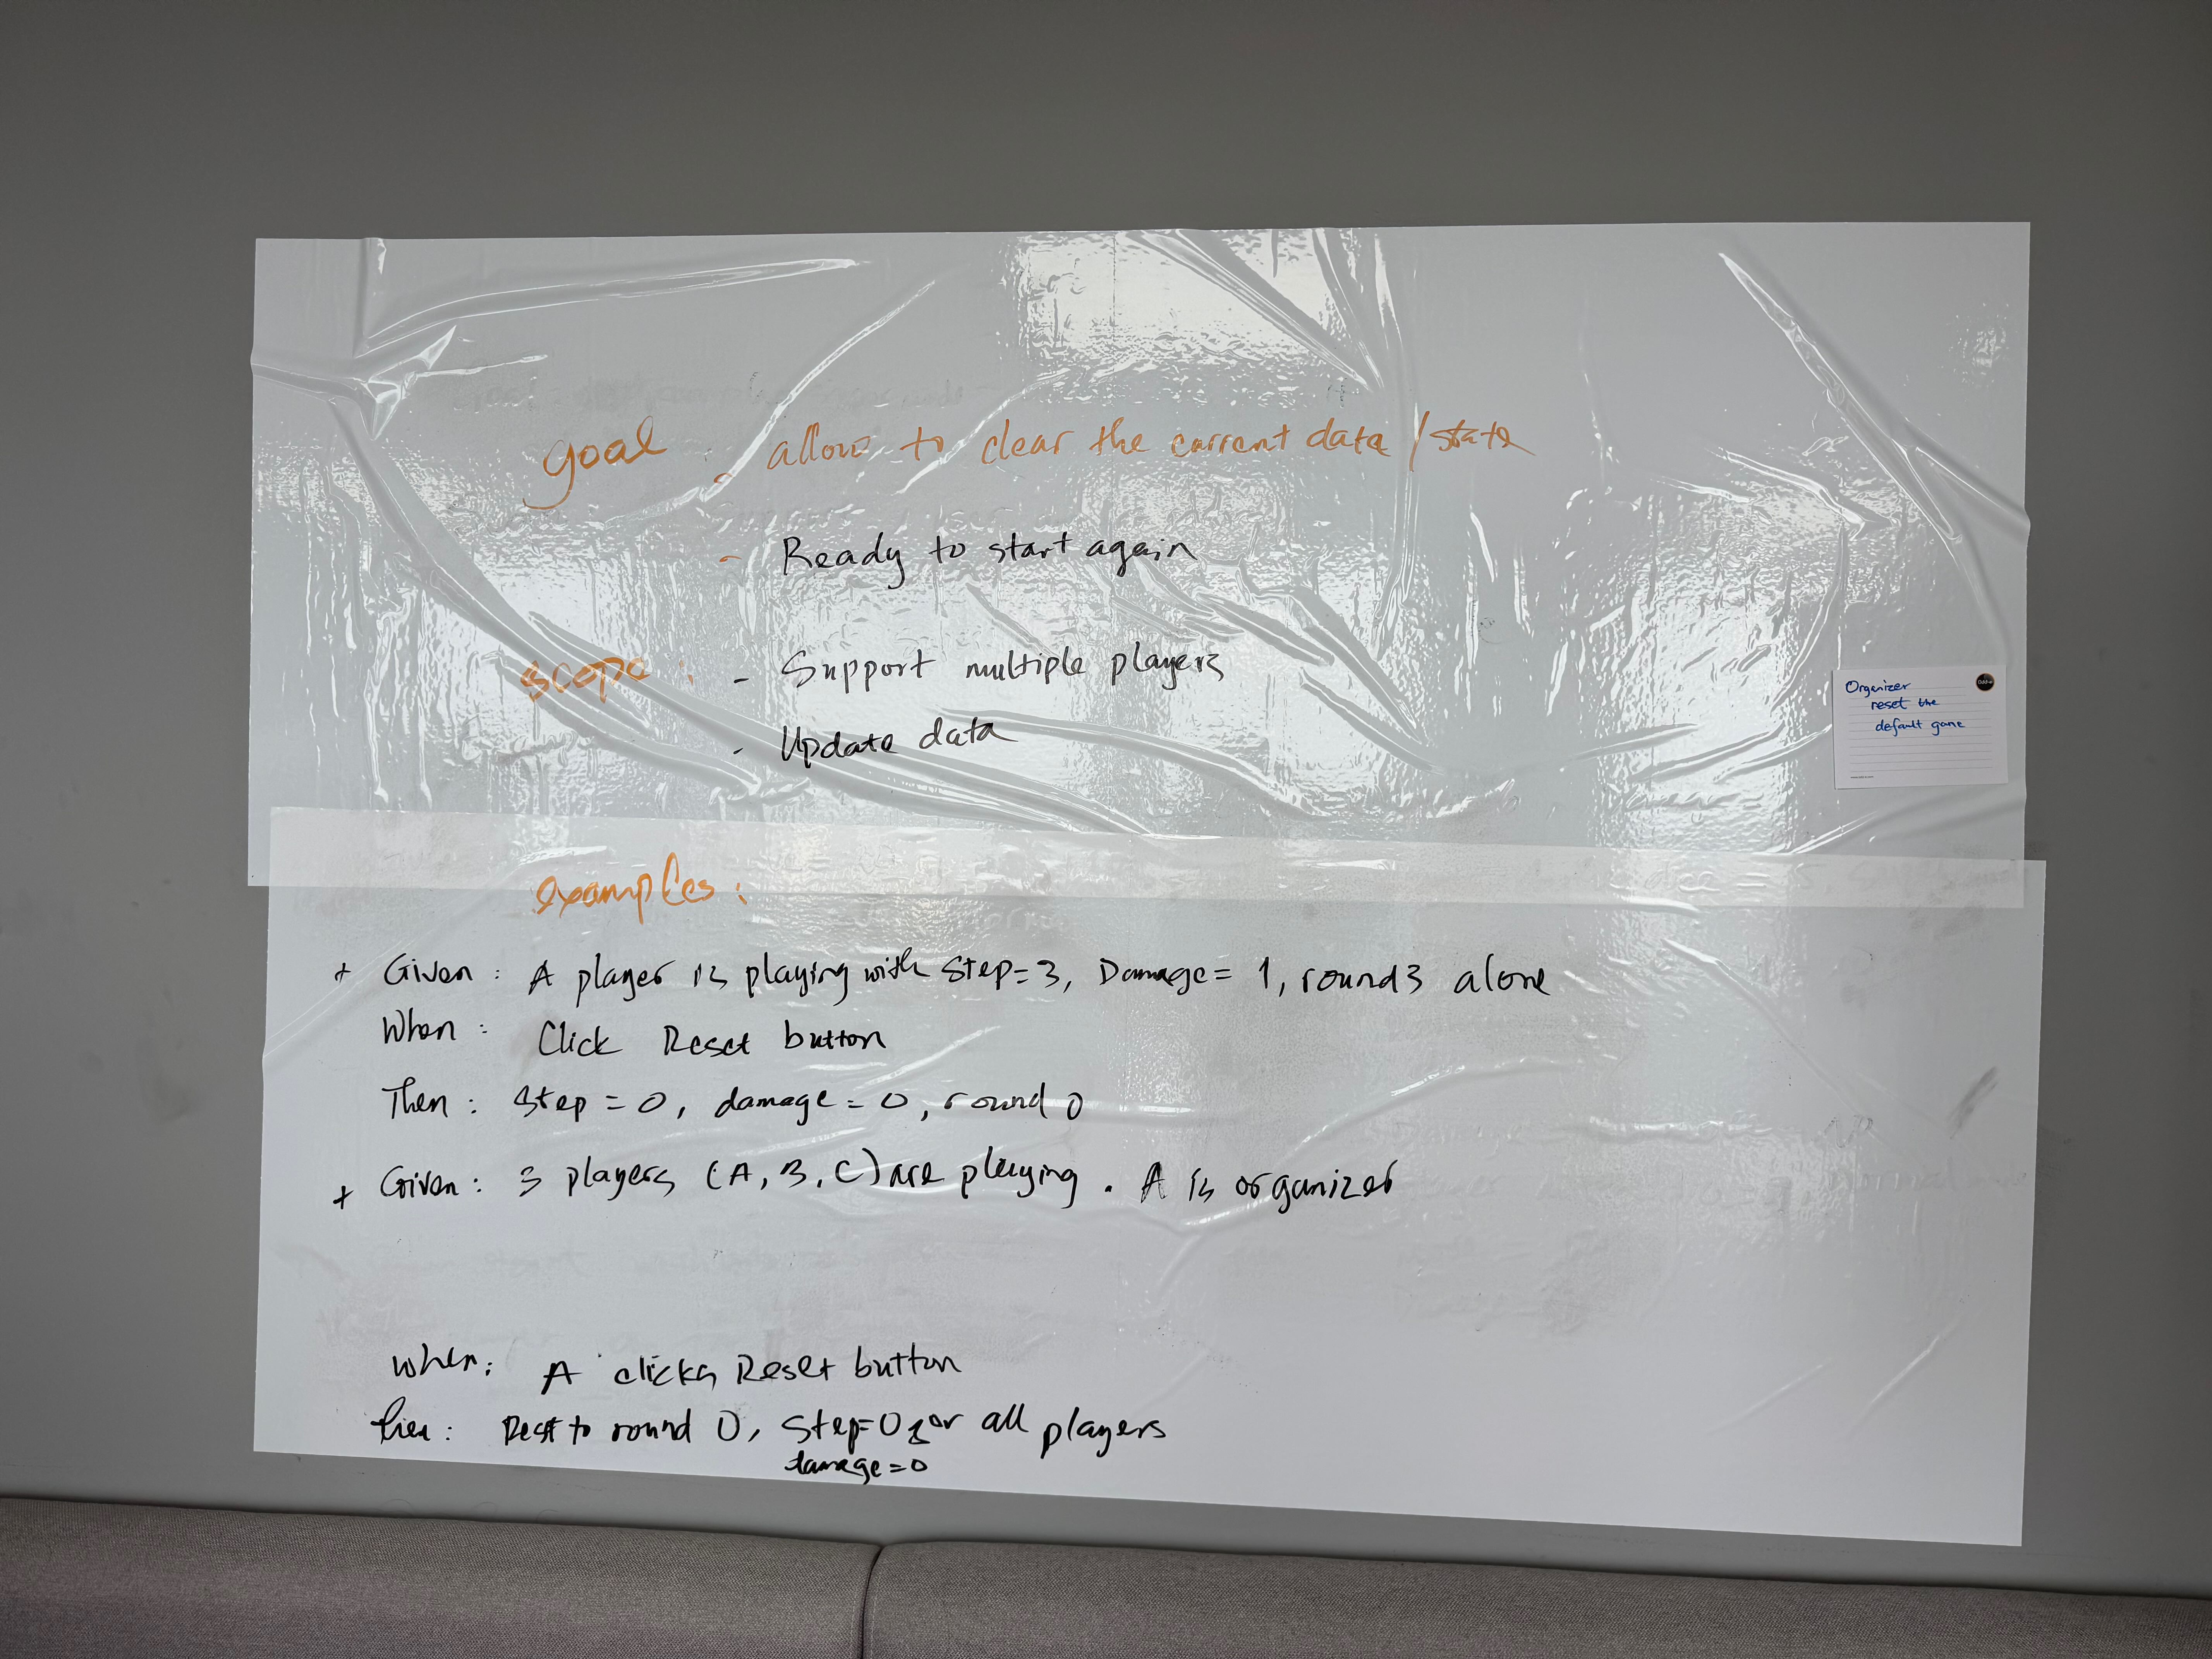 goal : - allow to clear the current data / state
- Ready to start again
scope : - Support multiple players
- Update data
Organizer
reset the
default game
examples :
+ Given : A player is playing with step=3, Damage= 1, round 3 alone
When : Click Reset button
Then : Step = 0, damage = 0, round 0
+ Given : 3 players (A, B, C) are playing . A is organizer
When : A clicks Reset button
then : Reset to round 0, Step=0 for all players
damage=0